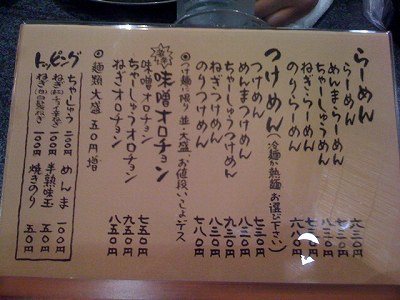 らーめん
らーめん 六三〇円
めんまらーめん 七三〇円
ちゃーしゅうらーめん 八三〇円
ねぎらーめん 七三〇円
のりらーめん 六八〇円
つけめん (冷麺か熱麺お選び下さい)
つけめん 七三〇円
めんまつけめん 八三〇円
ちゃーしゅうつけめん 九三〇円
ねぎつけめん 八三〇円
のりつけめん 七八〇円
つけ麺に限り 並・大盛、お値段いっしょデス
味噌オロチョン
味噌オロチョン 七五〇円
ちゃーしゅうオロチョン 九五〇円
ねぎオロチョン 八五〇円
麺類 大盛 五〇円増
トッピング
ちゃーしゅう 二〇〇円
一〇〇円
一〇〇円
めんま 一〇〇円
半熟味玉 五〇円
焼きのり 五〇円